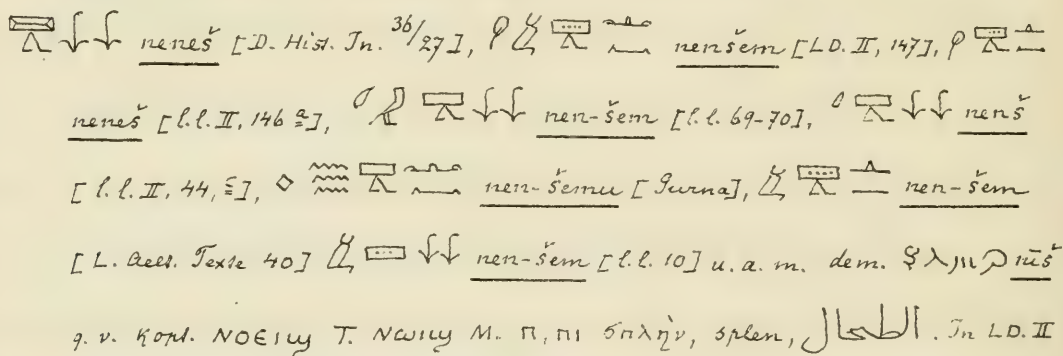 neneš [D. Hist. In. 36/27], nenšem [LD. II, 147],
neneš [l.l. II, 146 a], nen-šem [l.l. 69-70], nenš
[l.l. II, 44, c], nen-šemu [Gurna], nen-šem
[L. Aelt. Texte 40] nen-šem [l.l. 10] u. a. m. dem. nīš
q. v. Kopt. ⲛⲟⲉⲓϣ T. ⲛⲱⲓϣ M. ⲡ, ⲡⲓ σπλήν, splen, الطحال. In LD. II